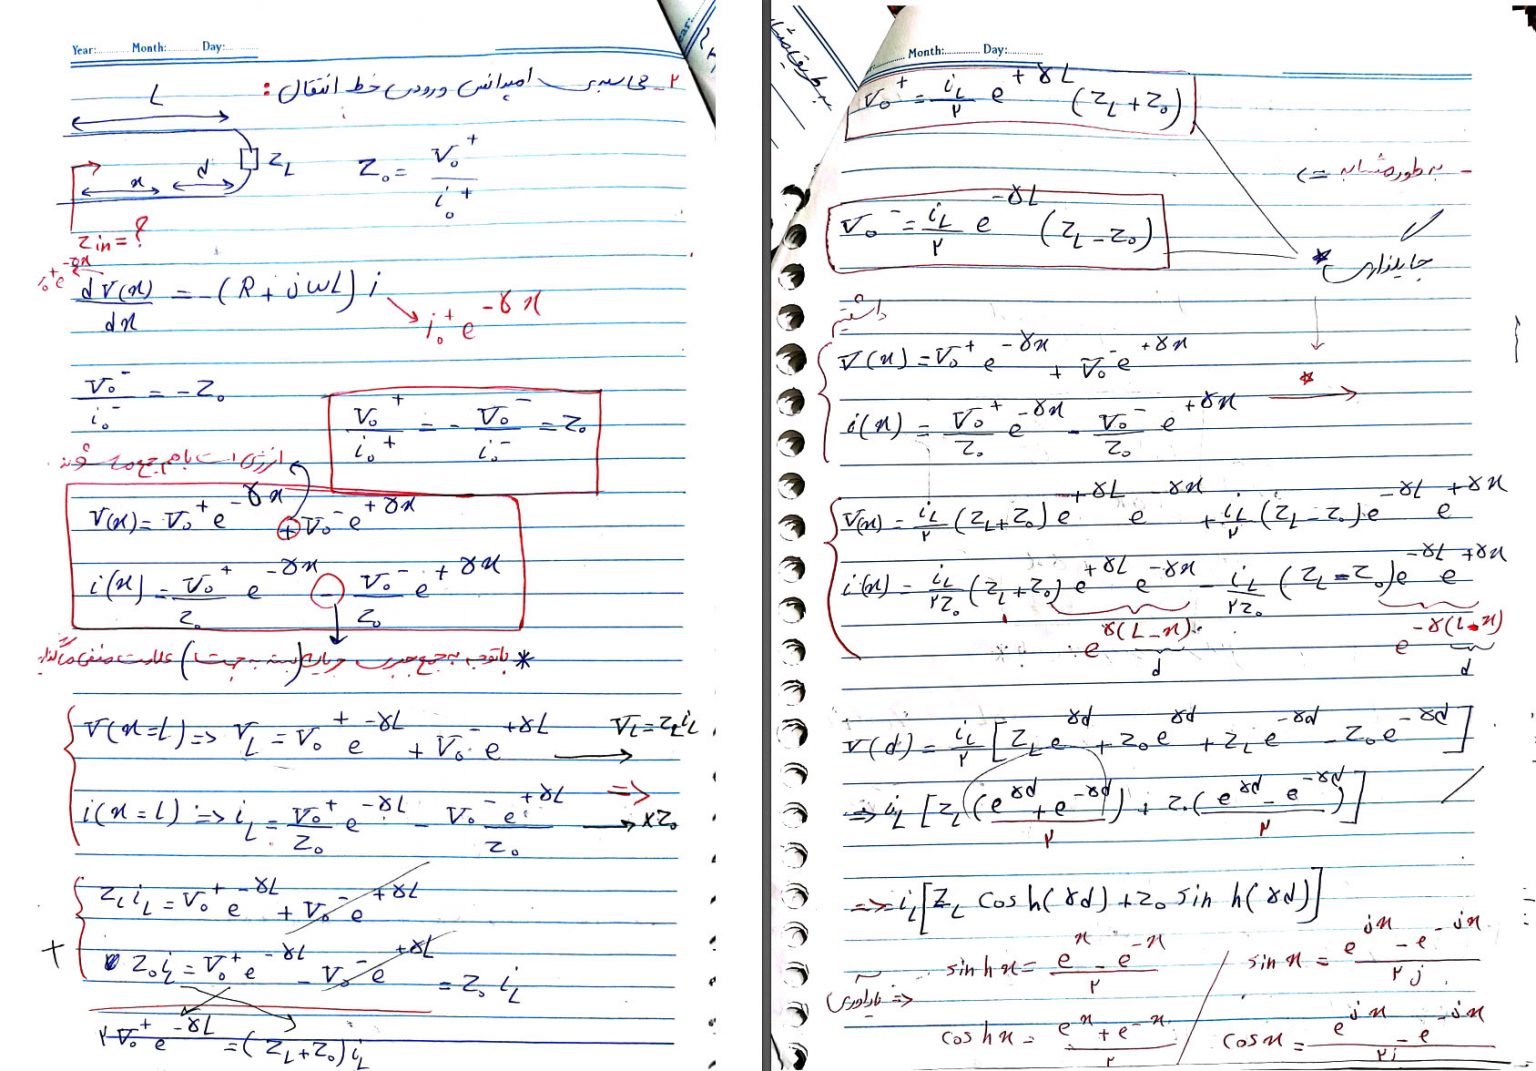 Year: Month: Day:
۲_ محاسبه امپدانس ورودی خط انتقال :
L
Z_L
d
x
Z₀ = V₀⁺ / i₀⁺
Zin = ?
i₀⁺ e^{-γx}
dV(x)/dx = -(R + jωL) i
i₀⁺ e^{-γx}
V₀⁻ / i₀⁻ = -Z₀
V₀⁺ / i₀⁺ = - V₀⁻ / i₀⁻ = Z₀
انرژی است باهم جمع می شوند
V(x) = V₀⁺ e^{-γx} + V₀⁻ e^{+γx}
i(x) = V₀⁺/Z₀ e^{-γx} - V₀⁻/Z₀ e^{+γx}
* باتوجه به جمع جبری جریان (بسته به جهت) علامت منفی میگذاریم
V(x=L) => V_L = V₀⁺ e^{-γL} + V₀⁻ e^{+γL} → V_L = Z_L i_L
=>
i(x=L) => i_L = V₀⁺/Z₀ e^{-γL} - V₀⁻ e^{+γL}/Z₀ → ×Z₀
Z_L i_L = V₀⁺ e^{-γL} + V₀⁻ e^{+γL}
+
Z₀ i_L = V₀⁺ e^{-γL} - V₀⁻ e^{+γL} = Z₀ i_L
۲V₀⁺ e^{-γL} = (Z_L + Z₀) i_L
Month: Day:
V₀⁺ = i_L/۲ e^{+γL} (Z_L + Z₀)
- به طور مشابه =>
V₀⁻ = i_L/۲ e^{-γL} (Z_L - Z₀)
* جایگذاری
داشتیم
V(x) = V₀⁺ e^{-γx} + V₀⁻ e^{+γx}
*
i(x) = V₀⁺/Z₀ e^{-γx} - V₀⁻/Z₀ e^{+γx}
V(x) = i_L/۲ (Z_L + Z₀) e^{+γL} e^{-γx} + i_L/۲ (Z_L - Z₀) e^{-γL} e^{+γx}
i(x) = i_L/۲Z₀ (Z_L + Z₀) e^{+γL} e^{-γx} - i_L/۲Z₀ (Z_L - Z₀) e^{-γL} e^{+γx}
e^{γ(L-x)} e^{-γ(L-x)}
d d
V(d) = i_L/۲ [Z_L e^{γd} + Z₀ e^{γd} + Z_L e^{-γd} - Z₀ e^{-γd}]
=> i_L [Z_L (e^{γd} + e^{-γd})/۲ + Z₀ (e^{γd} - e^{-γd})/۲]
=> i_L [Z_L cosh(γd) + Z₀ sinh(γd)]
یادآوری =>
sinhx = (e^x - e^{-x})/۲
sinx = (e^{jx} - e^{-jx})/۲j
coshx = (e^x + e^{-x})/۲
cosx = (e^{jx} - e^{-jx})/۲j